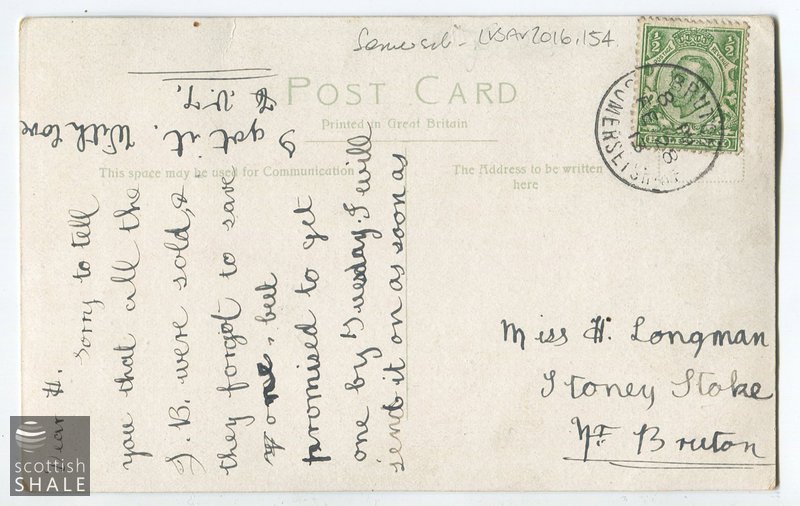 Somerset - LVSAV2016.154
POST CARD
Printed in Great Britain
This space may be used for Communication
The Address to be written
here
½ ½
BRUTON
SOMERSETSHIRE
Dear H.
Sorry to tell
you that all the
J. B. were sold, &
they forgot to save
one, but
promised to get
one by Tuesday. I will
send it on as soon as
I got it. With love
Miss H. Longman
Stoney Stoke
Nr Bruton
scottish
SHALE